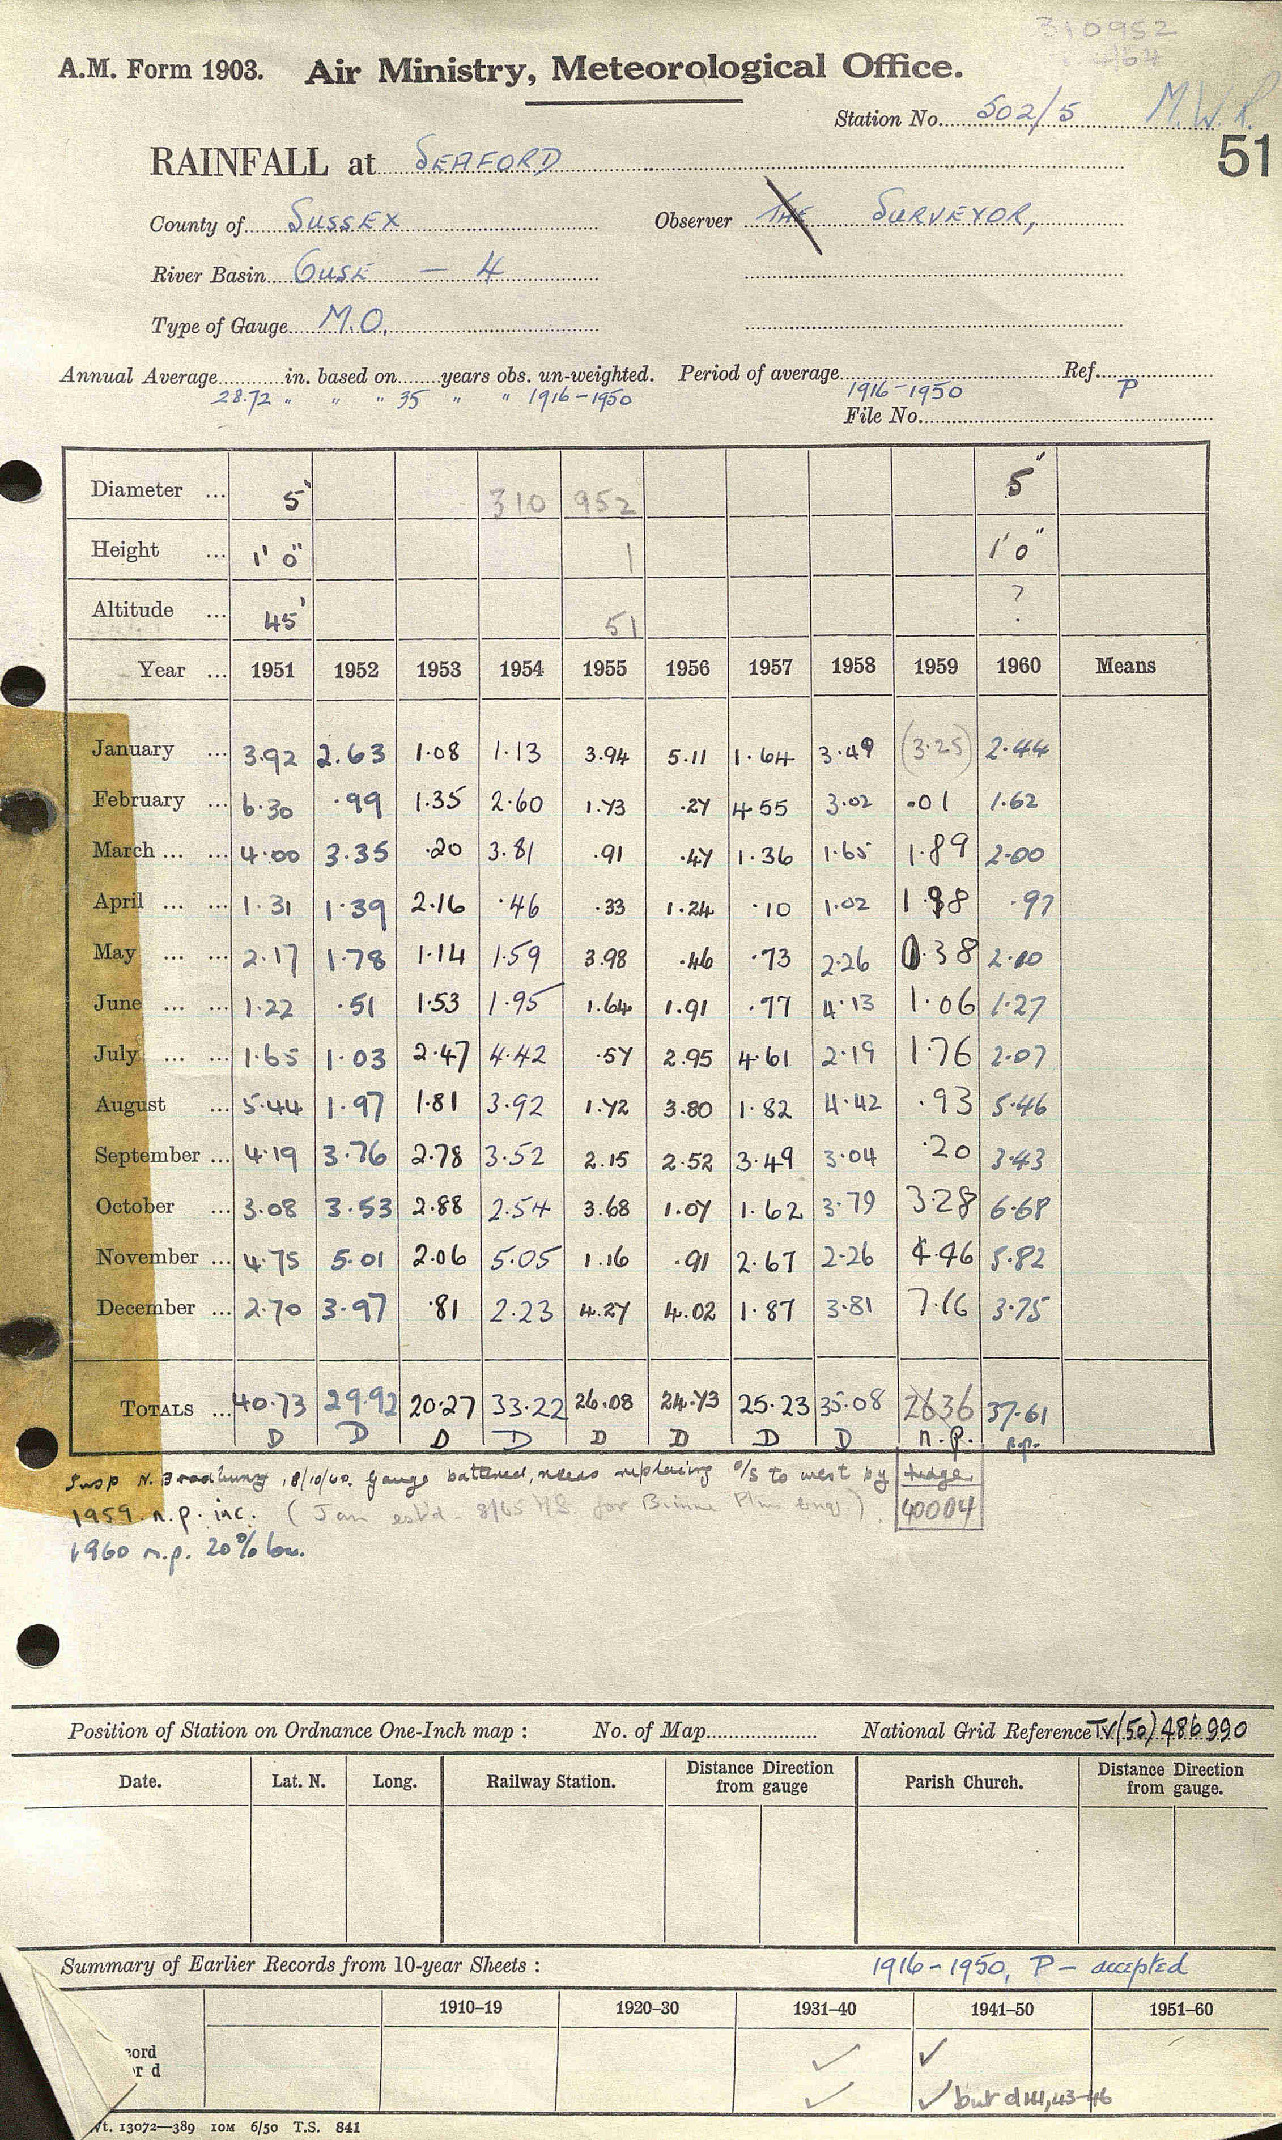 310952
A.M. Form 1903. Air Ministry, Meteorological Office.
Station No. 502/5 M.W.R.
51
RAINFALL at SEAFORD
County of SUSSEX Observer THE SURVEYOR,
River Basin OUSE — 4
Type of Gauge M.O.
Annual Average in. based on years obs. un-weighted. Period of average Ref.
28.72 " " " 35 " " 1916-1950 1916-1950 P
File No.
Diameter ... 5" 310 952 5"
Height ... 1' 0" 1 1' 0"
Altitude ... 45' 51 ?
Year ... 1951 1952 1953 1954 1955 1956 1957 1958 1959 1960 Means
January ... 3.92 2.63 1.08 1.13 3.94 5.11 1.64 3.49 (3.25) 2.44
February ... 6.30 .99 1.35 2.60 1.73 .27 4.55 3.02 .01 1.62
March ... ... 4.00 3.35 .20 3.81 .91 .47 1.36 1.65 1.89 2.00
April ... ... 1.31 1.39 2.16 .46 .33 1.24 .10 1.02 1.98 .97
May ... ... 2.17 1.78 1.14 1.59 3.98 .46 .73 2.26 0.38 2.10
June ... ... 1.22 .51 1.53 1.95 1.64 1.91 .77 4.13 1.06 1.27
July ... ... 1.65 1.03 2.47 4.42 .57 2.95 4.61 2.19 1.76 2.07
August ... 5.44 1.97 1.81 3.92 1.72 3.80 1.82 4.42 .93 5.46
September ... 4.19 3.76 2.78 3.52 2.15 2.52 3.49 3.04 .20 3.43
October ... 3.08 3.53 2.88 2.54 3.68 1.07 1.62 3.79 3.28 6.68
November ... 4.75 5.01 2.06 5.05 1.16 .91 2.67 2.26 4.46 5.82
December ... 2.70 3.97 .81 2.23 4.27 4.02 1.87 3.81 7.16 3.75
TOTALS ... 40.73 29.92 20.27 33.22 26.08 24.73 25.23 35.08 2636 37.61
D D D D D D D D n.p. n.p.
Insp N. Bradbury, 18/10/60. Gauge battered, needs replacing o/s to west by hedge.
1959 n.p. inc. (Jan est'd. 8/65 for ) 40004
1960 n.p. 20% low.
Position of Station on Ordnance One-Inch map : No. of Map National Grid Reference TV(50)486990
Date. Lat. N. Long. Railway Station. Distance Direction from gauge Parish Church. Distance Direction from gauge.
Summary of Earlier Records from 10-year Sheets : 1916-1950, P - accepted
1910-19 1920-30 1931-40 1941-50 1951-60
ord ✓ ✓
r d ✓ ✓ but d 141,43-46
Wt. 13072—389 10M 6/50 T.S. 841